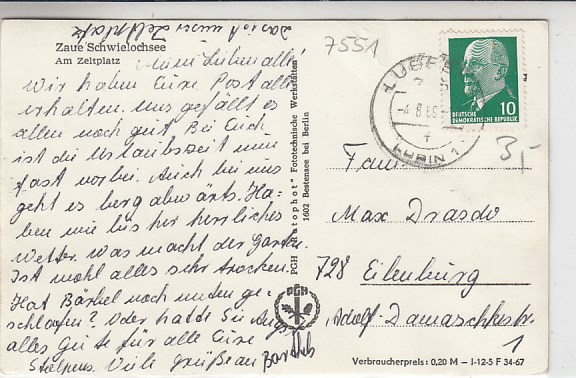 Das ist unser Zeltplatz
Zaue Schwielochsee
Am Zeltplatz
7551
alle!
Wir haben Eure Post alle
erhalten. Uns gefällt es
allen noch gut. Bei Euch
ist die Urlaubszeit nun
fast vorbei. Auch bei uns
geht es berg abwärts. Ha-
ben wie bisher herrliches
Wetter. Was macht der Garten
Ist wohl alles sehr trocken.
Hat Bärbel noch unden ge-
schlafen? Oder hatte Sie Angst
alles Gute für alle Eure
Viele Grüße an Barbeb
PGH "Fotophot" Fototechnische Werkstätten
1602 Bestensee bei Berlin
PGH
LÜBBEN
-4.8.69
LUBIN 1
10
DEUTSCHE
DEMOKRATISCHE REPUBLIK
3,-
Fam.
Max Drasdo
728 Eilenburg
Adolf-Damaschkestr.
1
Verbraucherpreis: 0,20 M – I-12-5 F 34-67